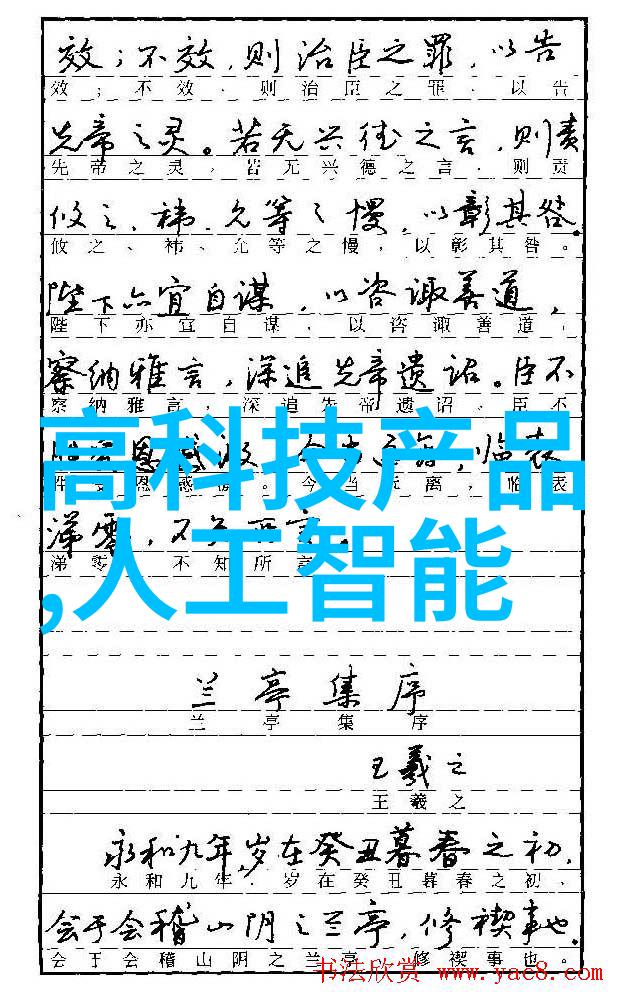 效；不效，则治臣之罪，以告
效；不效、则治臣之罪、以告
先帝之灵。若无兴德之言，则责
先帝之灵，若无兴德之言，则责
攸之、祎、允等之慢，以彰其咎。
攸之、祎、允等之慢，以彰其咎。
陛下亦宜自谋，以咨诹善道，
陛下亦宜自谋，以咨诹善道，
察纳雅言，深追先帝遗诏。臣不
察纳雅言，深追先帝遗诏。臣不
高科技产品
恩感激 今当远离，临表
恩感激。今当远离，临表
涕零，不知所言。
涕零 不知所言
,人工智能
兰亭集序
兰亭集序
王羲之
王羲之
永和九年，岁在癸丑暮春之初，
永和九年，岁在癸丑暮春之初、
会于会稽山阴之兰亭，修禊事也。
会于会稽山阴之兰亭 修禊事也。
书法欣赏 www.yac8.com